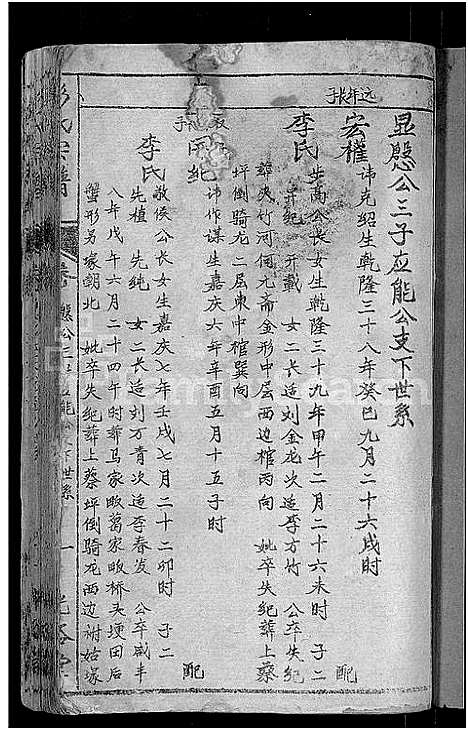 显慇公三子应能公支下世系
远年长子
宏權 讳克绍生乾隆三十八年癸巳九月二十六戌时 配
李氏 步高公长女生乾隆三十九年甲午二月二十六未时 子二
开纪 开载 女二长造刘金龙次造李方竹 公卒失纪
葬夹竹河何九斋金形中层西边棺丙向 妣卒失纪葬上蔡
坪倒骑龙二层东中棺巽向
纪 讳作谋生嘉庆六年辛酉五月十五子时 配
李氏 敦侯公长女生嘉庆七年壬戌七月二十二卯时 子二
先植 先纯 女二长造刘万青次造李春发 公卒咸丰
八年戊午六月二十四午时葬马家畈葛家畈桥头埂田后
蟹形另冢朝北 妣卒失纪葬上蔡坪倒骑龙西边祔姑塚
氏宗譜
慇公三子应能公支下世系
一